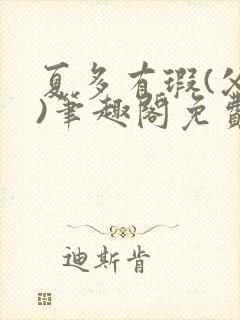 夏多有瑕(父
)笔趣阁免费
迪斯肯